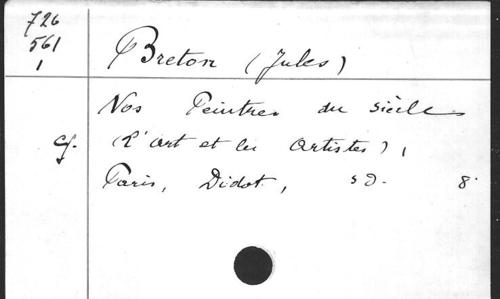 726
561
1
Breton (Jules)
Nos Peintres du Siècle
cf. (L'art et les artistes),
Paris, Didot, s d. 8°